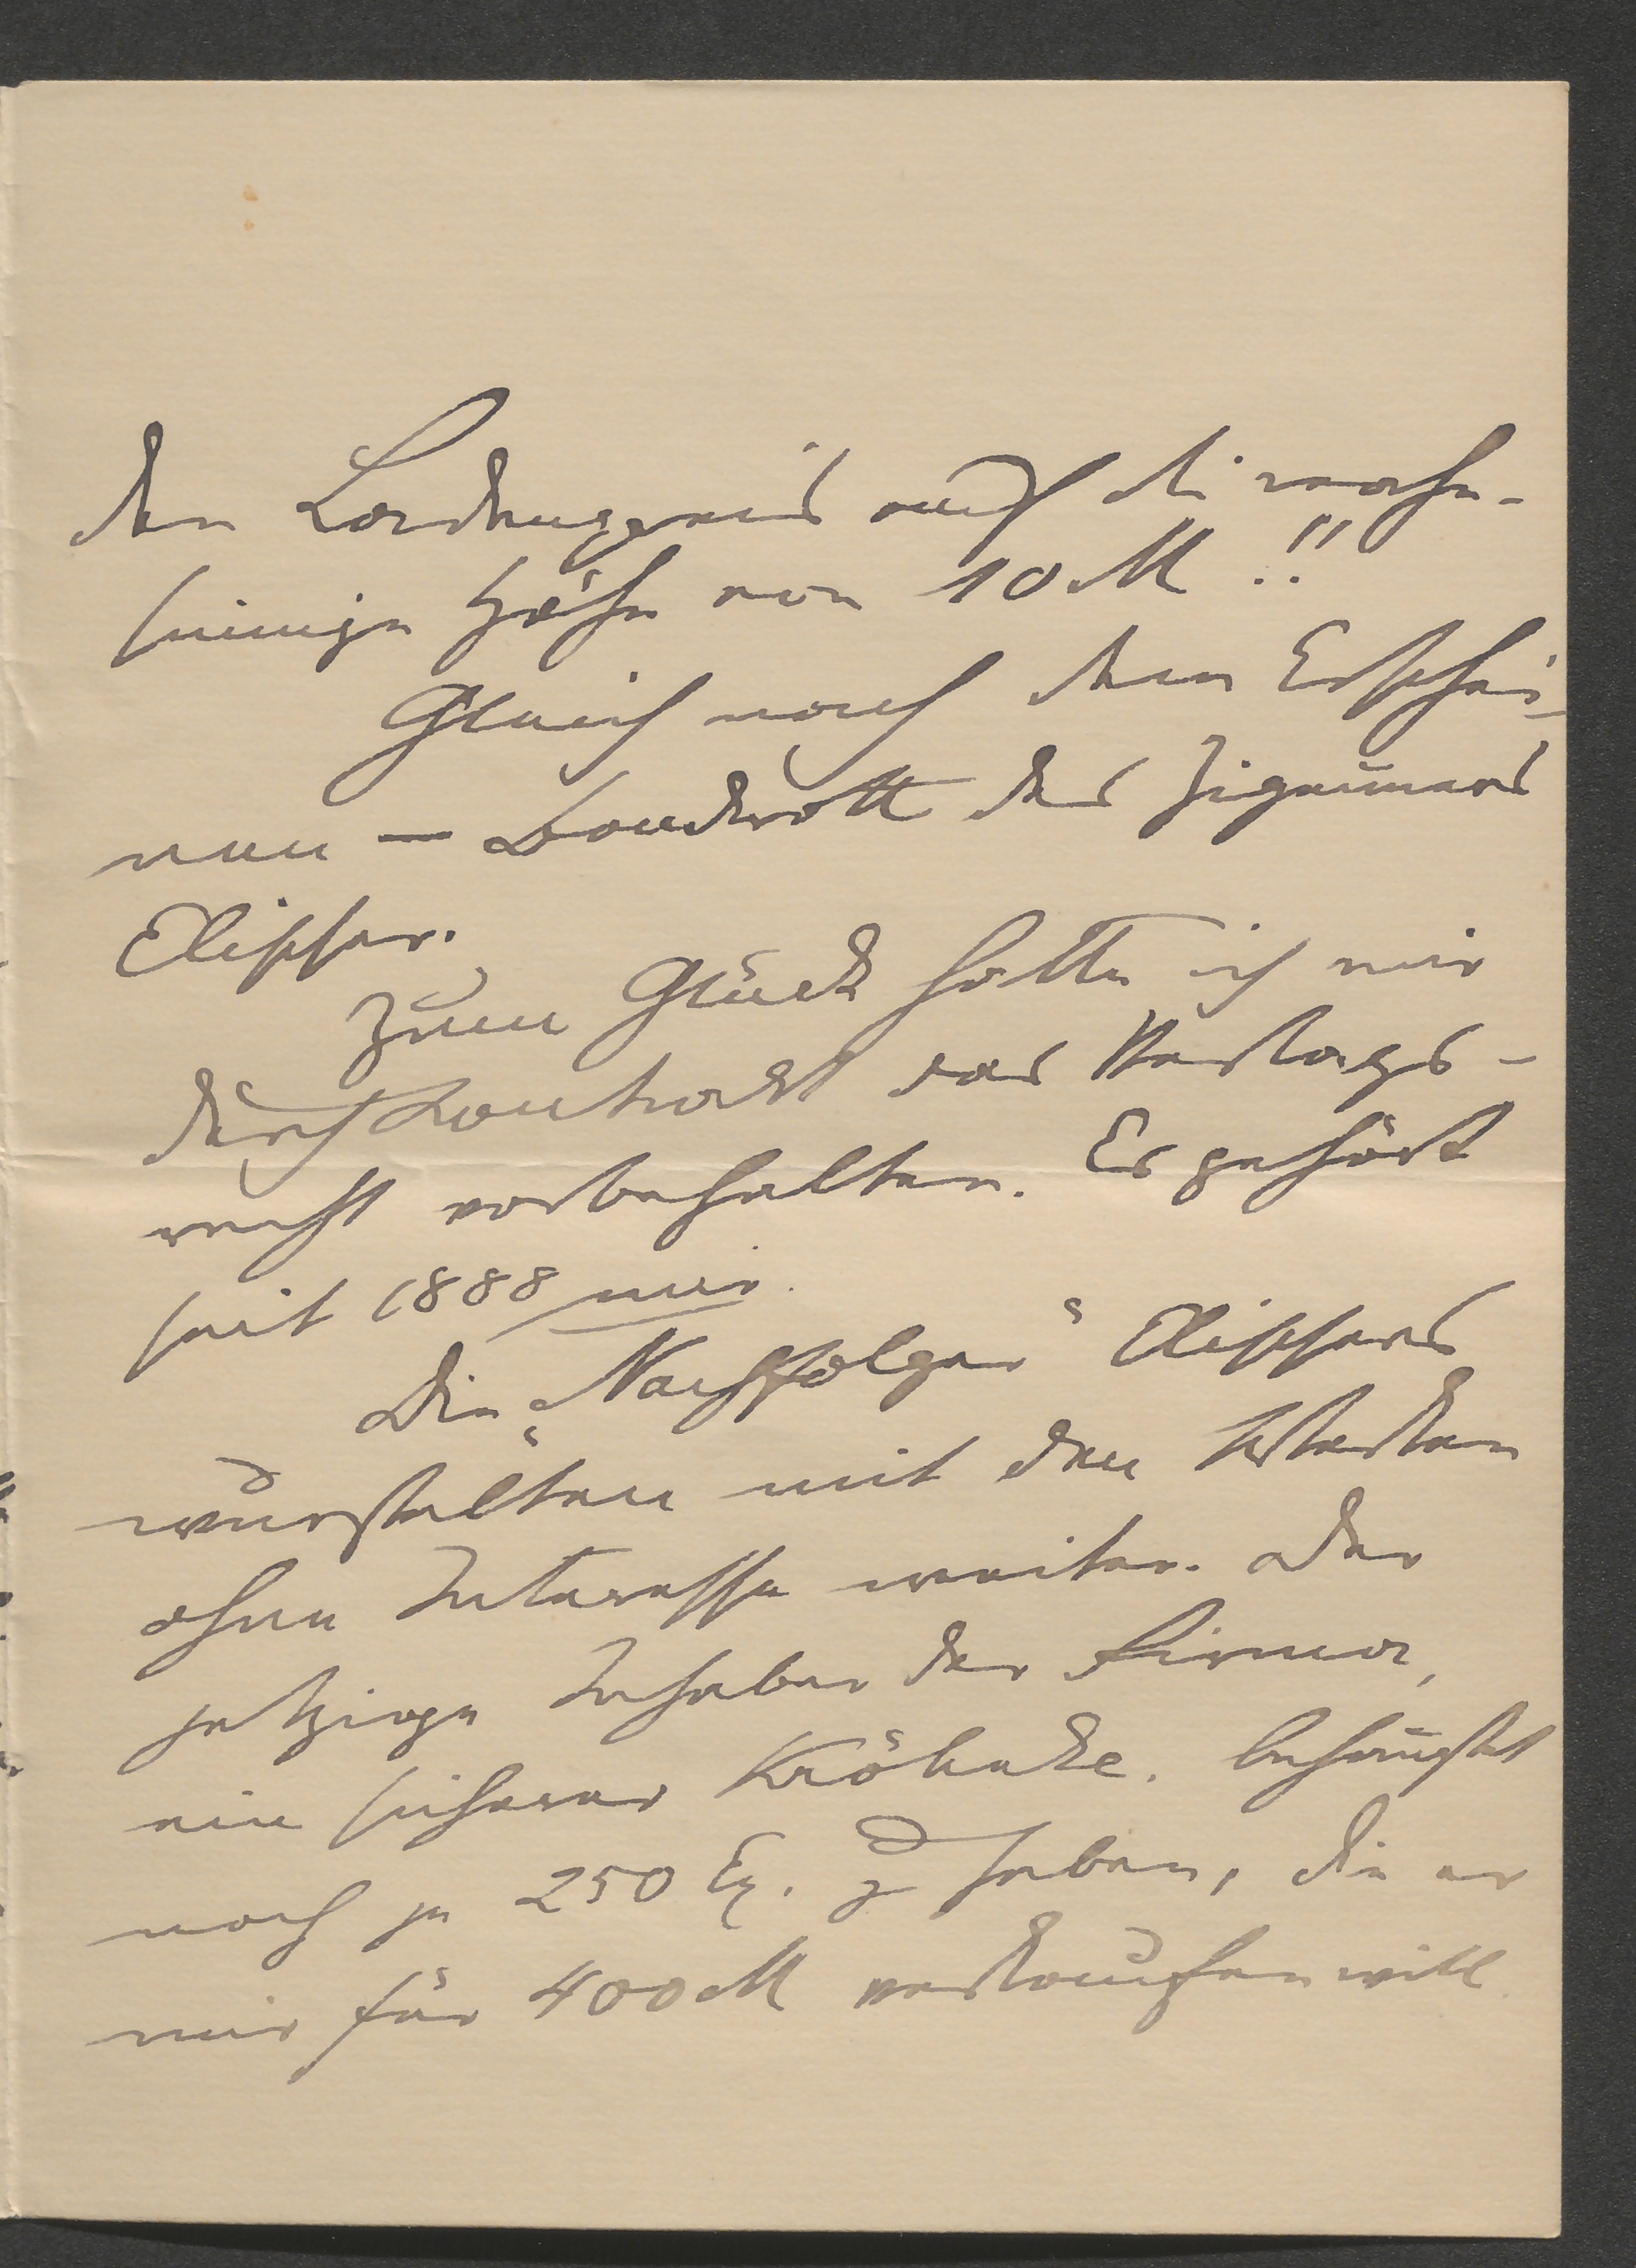 den Ladenpreis auf die wahn-
sinnige Höhe von 10 M !!
Gleich nach dem Erschei-
nen — Bankrott des Zigeuners
Elischer.
Zum Glück hatte ich mir
durch Kontrakt das Verlags-
recht vorbehalten. Es gehört
seit 1888 mir.
Die „Nachfolger“ Elischers
wurstelten mit den Werken
ohne Interesse weiter. Der
jetzige Inhaber der Firma,
ein sicherer Kröhnke, behauptet
noch je 250 Ex. zu haben, die er
mir für 400 M verkaufen will